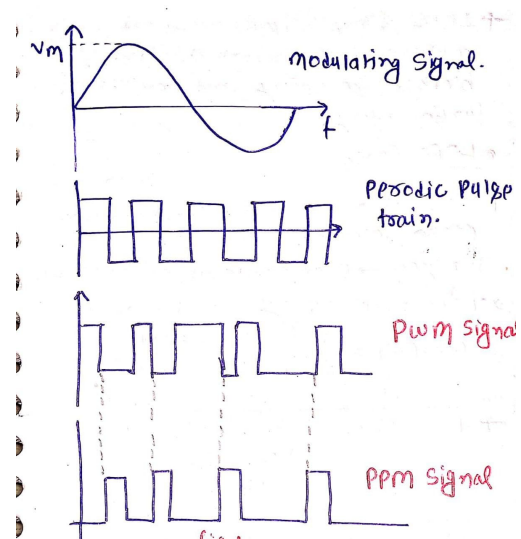 Vm
modulating Signal.
t
Perodic Pulse
train.
PWM Signal
PPM Signal